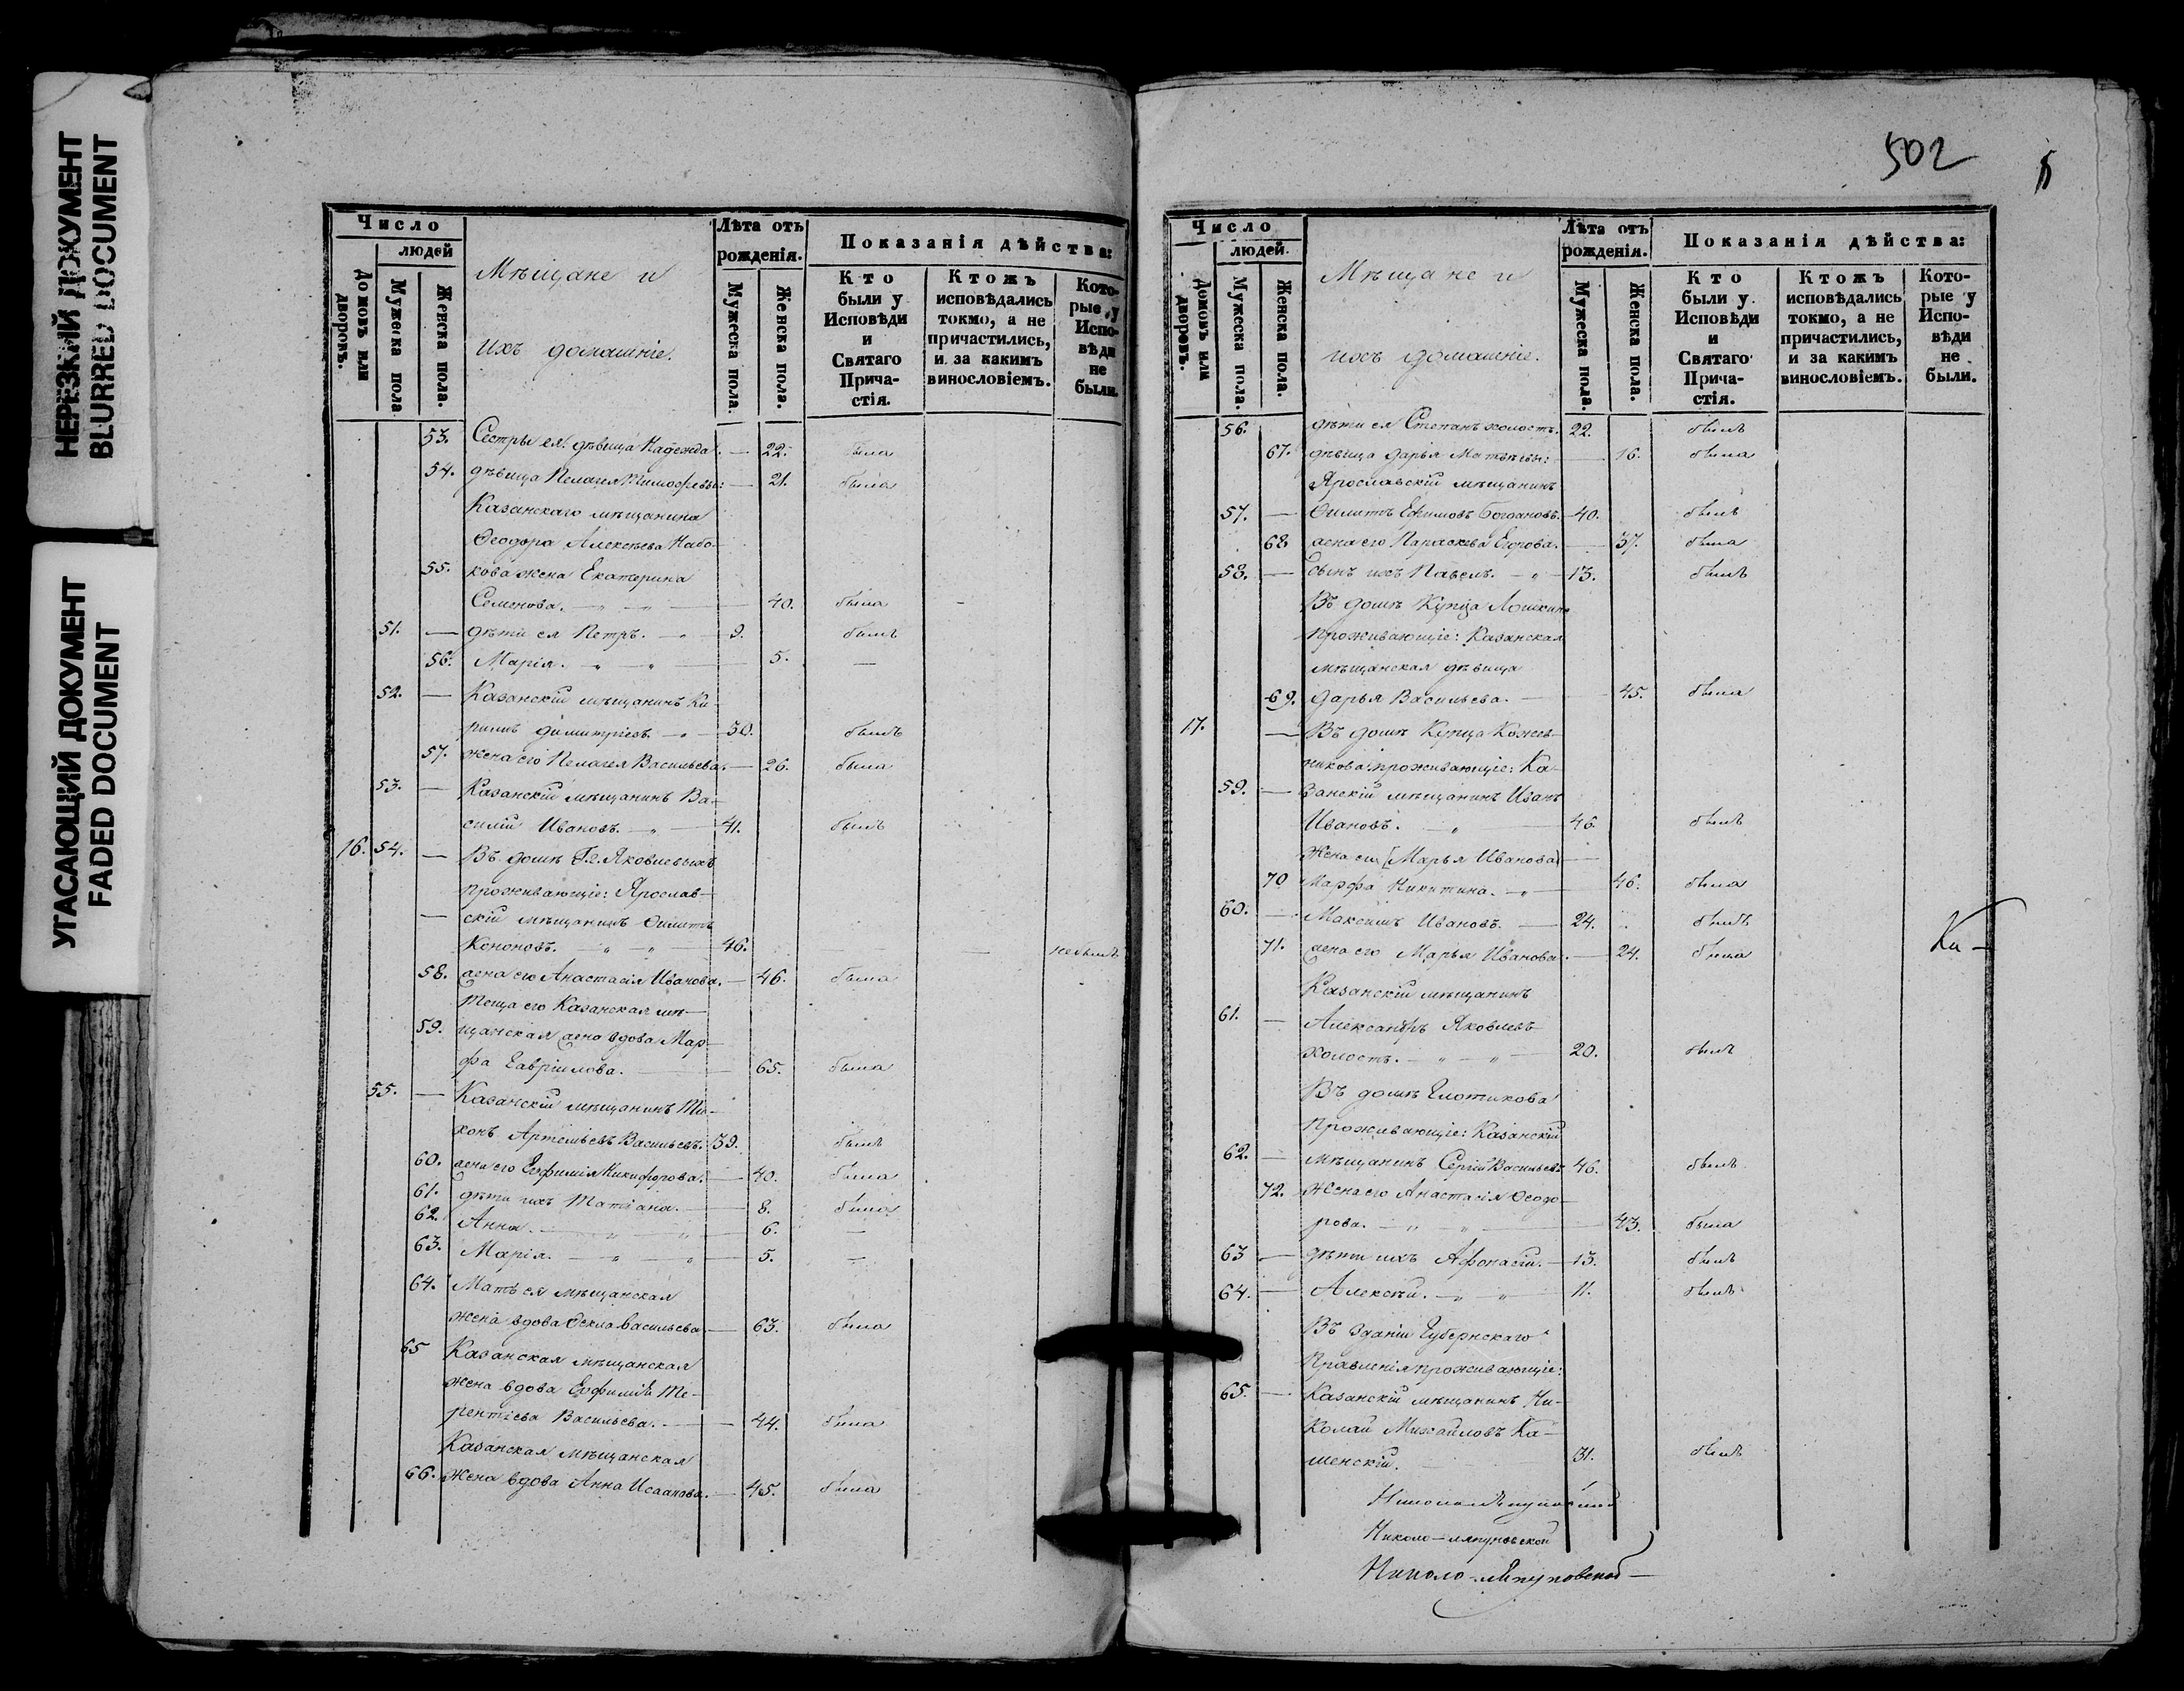 НЕРЕЗКИЙ ДОКУМЕНТ
BLURRED DOCUMENT
УГАСАЮЩИЙ ДОКУМЕНТ
FADED DOCUMENT
Число
людей
Домовъ или дворовъ.
Мужеска пола
Женска пола.
Мѣщане и
ихъ домашніе.
Лѣта отъ рожденія.
Мужеска пола.
Женска пола.
Показанія дѣйства:
Кто были у Исповѣди и Святаго Прича-стія.
Ктожъ исповѣдались токмо, а не причастились, и за какимъ винословіемъ.
Кото-рые у Испо-вѣди не были.
53. Сестры ея: дѣвица Надежда. — 22. была
54. дѣвица Пелагея Тимофеевы: — 21. была
Казанскаго мѣщанина
Ѳеодора Алексѣева Набо-
55. кова жена Екатерина
Семенова. — 40. была
51. — дѣти ея Петръ. — 9. былъ
56. Марія. — 5. —
52. — Казанскій мѣщанинъ Ки-
рилъ Димитріевъ. — 30. былъ
57. жена его Пелагея Васильева. — 26. была
53. — Казанскій мѣщанинъ Ва-
силій Ивановъ. — 41. былъ
16. 54. — Въ домѣ Гг. Яковлевыхъ
проживающіе: Ярослав-
— скій мѣщанинъ Филипъ
Кононовъ. — 46. — небылъ
58. жена его Анастасія Иванова. — 46. была
Теща его Казанская мѣ-
59. щанская жена вдова Мар-
фа Гавріилова. — 65. была
55. — Казанскій мѣщанинъ Ти-
хонъ Артемьевъ Васильевъ. 39. былъ
60. жена его Евфимія Никифорова. — 40. была
61. дѣти ихъ Татіана. — 8. была
62. Анна. — 6. —
63. Марія. — 5. —
64. Мать ея мѣщанская
жена вдова Ѳекла Васильева. — 63. была
65 Казанская мѣщанская
жена вдова Евфимія Те-
рентіева Васильева. — 44. была
Казанская мѣщанская
66. жена вдова Анна Исаакова. — 45. была
502
Число
людей.
Домовъ или дворовъ.
Мужеска пола.
Женска пола.
Мѣщане и
ихъ домашніе.
Лѣта отъ рожденія.
Мужеска пола.
Женска пола.
Показанія дѣйства:
Кто были у Исповѣди и Святаго Прича-стія.
Ктожъ исповѣдались токмо, а не причастились, и за какимъ винословіемъ.
Кото-рые у Испо-вѣди не были.
56. дѣти ея Степанъ холостъ. 22. былъ
67. дѣвица Дарья Матвѣевы: — 16. была
Ярославскій мѣщанинъ
57. — Филипъ Ефимовъ Богдановъ. — 40. былъ
68 жена его Параскева Егорова. — 37. была
58. — Сынъ ихъ Павелъ. — 13. былъ
Въ домѣ Купца
проживающіе: Казанская
мѣщанская дѣвица
69. Дарья Васильева. — 45. была
17. — Въ домѣ Купца Кожев-
никова проживающіе: Ка-
59. — занскій мѣщанинъ Иванъ
Ивановъ. — 46. былъ
Жена его [Марья Иванова]
70 Марфа Никитина. — 46. была
60. — Максимъ Ивановъ. — 24. былъ
71. жена его Марья Иванова. — 24. была
Ка-
Казанскій мѣщанинъ
61. — Александръ Яковлевъ
холостъ. — 20. былъ
Въ домѣ Глотикова
проживающіе: Казанскій
62. — мѣщанинъ Сергій Васильевъ 46. былъ
72. Жена его Анастасія Ѳеодо-
рова. — 43. была
63 — дѣти ихъ Афонасій. — 13. былъ
64. — Алексѣй. — 11. былъ
Въ зданіи Губернскаго
Правленія проживающіе:
65. — Казанскій мѣщанинъ Ни-
колай Михайловъ Ка-
менскій. 31. былъ
Николо-ляпуновской
Николо-ляпуновской
Николо-Ляпуновской